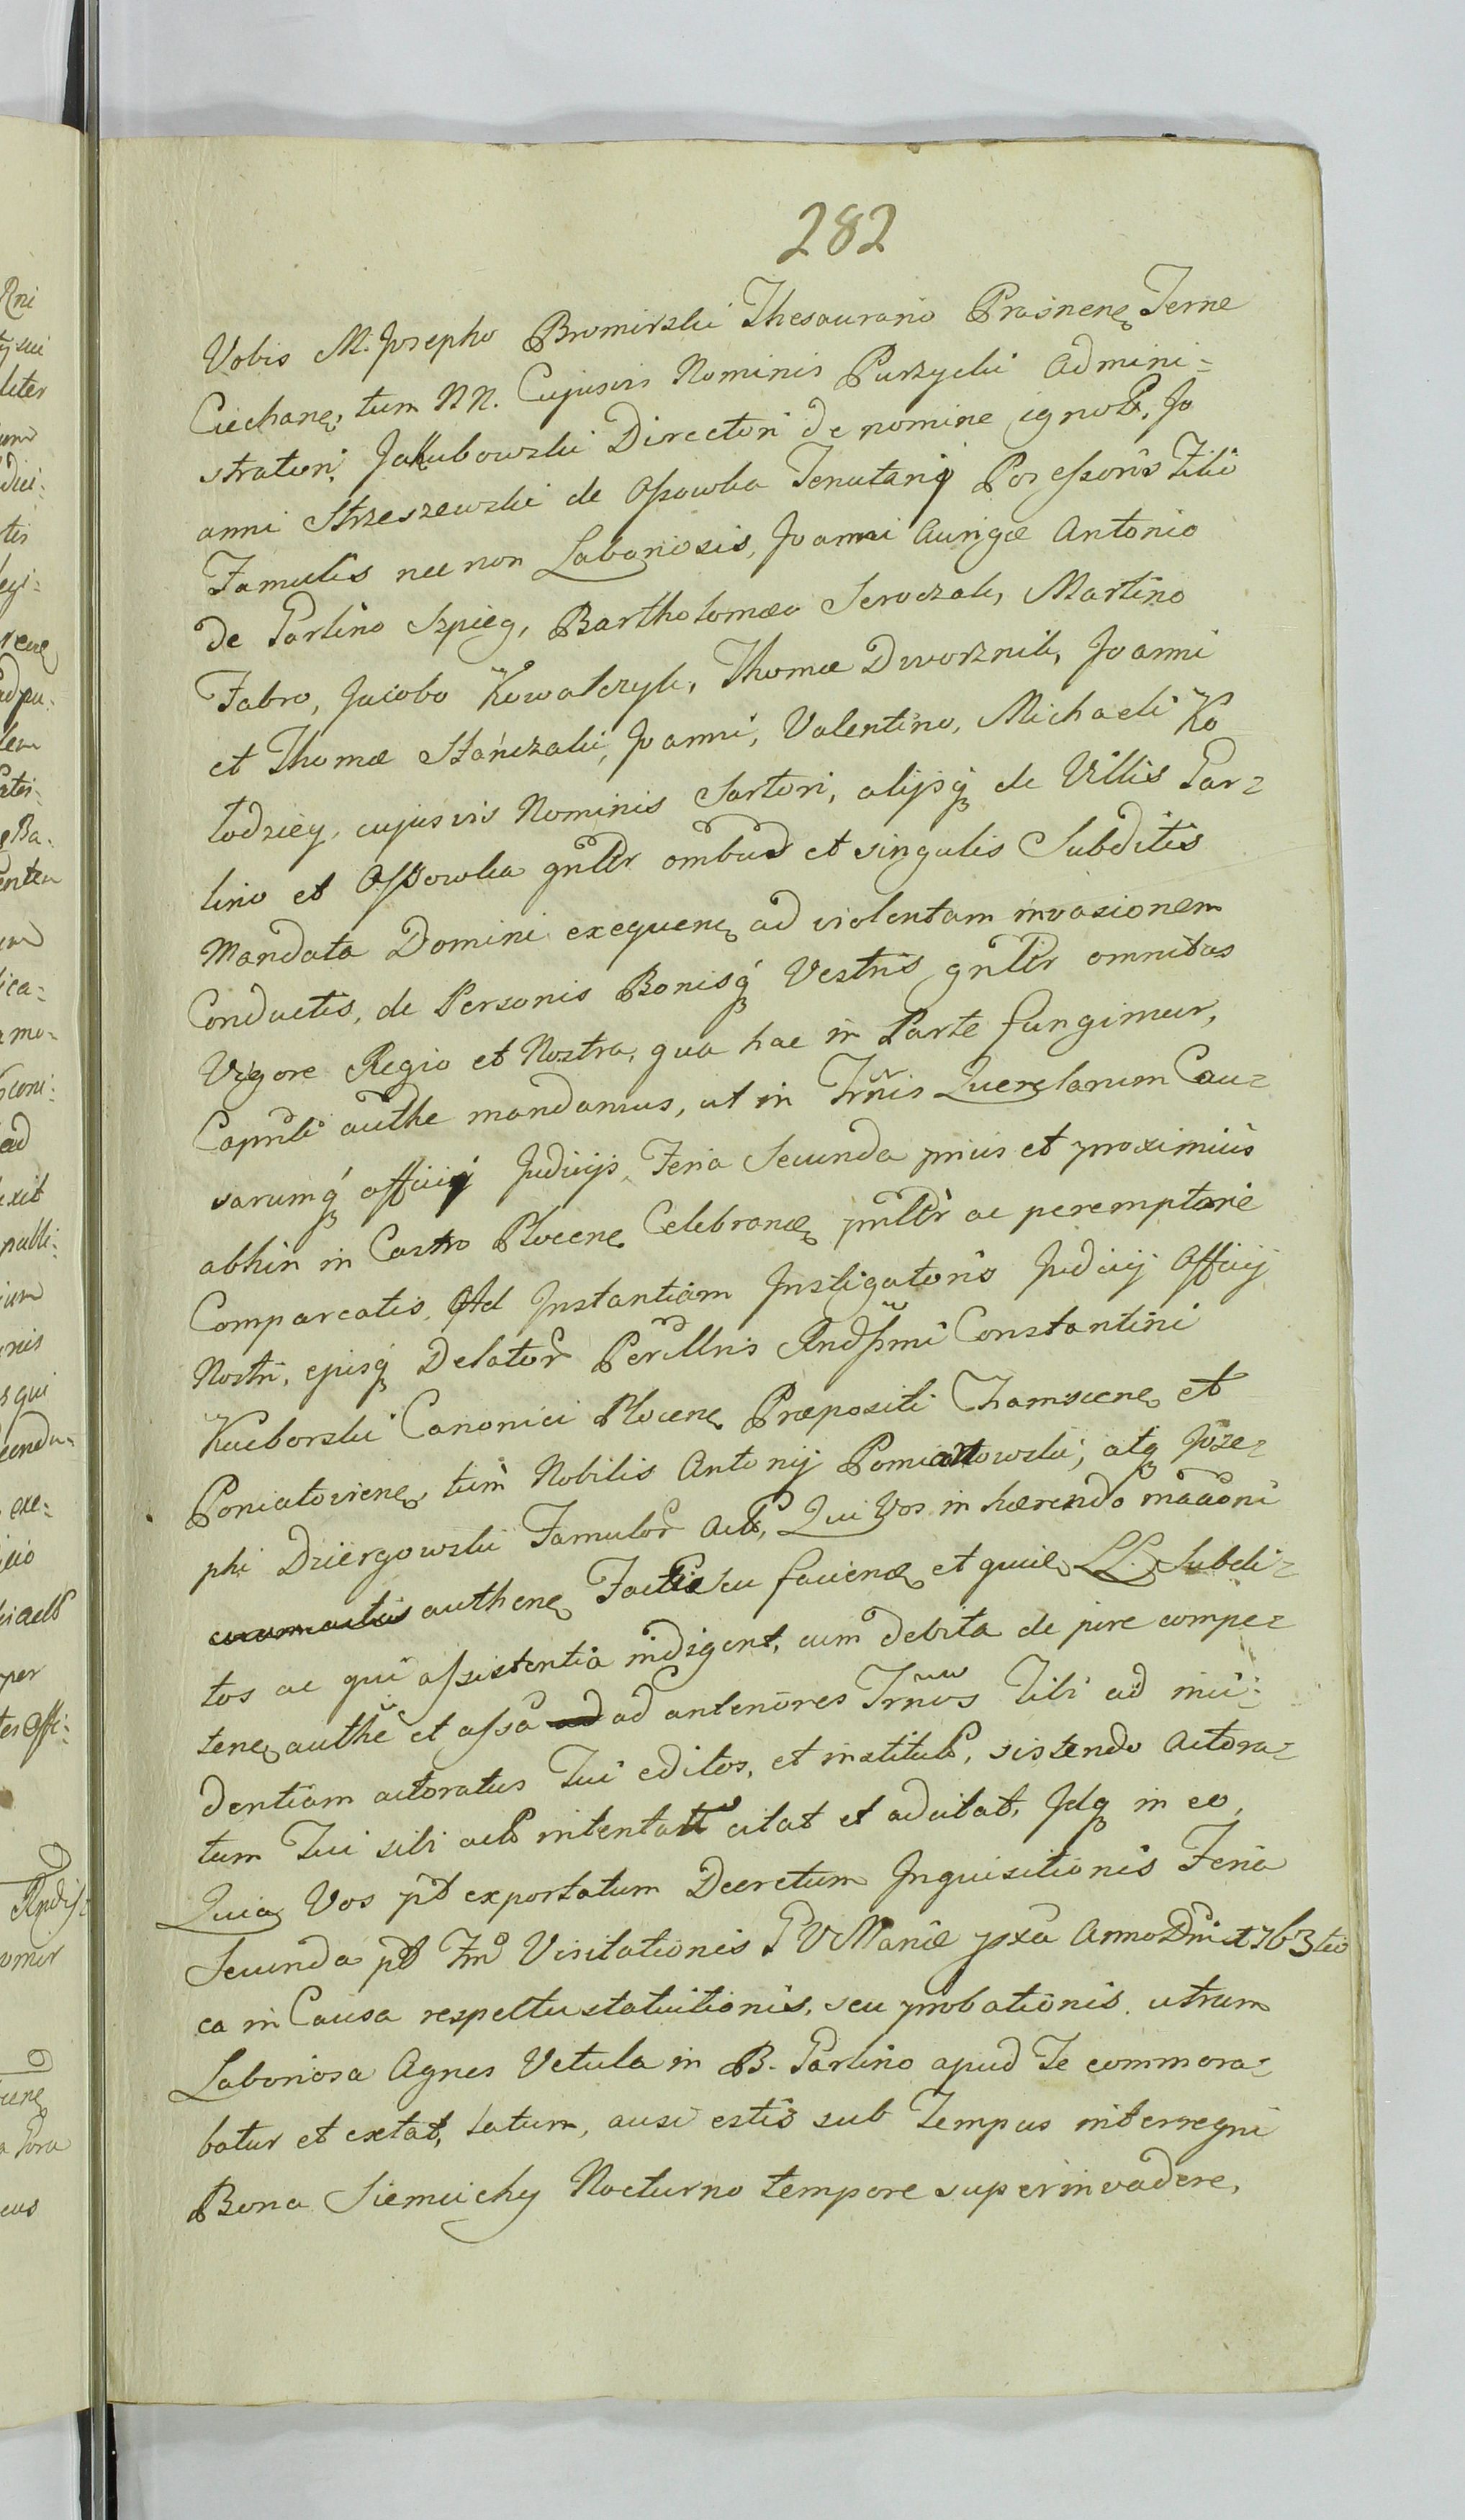 282
Vobis M. Josepho Bromirski Thesaurario Prasnenę Terrae
Ciechanę, tum NN. Cujusvis Nominis Purzycki Admini=
stratori, Jakubowski Directori de nomine ignotô, Jo
anni Strzeszewski de Ossowka Tenutarij Possessoris Filio
Famulis nec non Laboriosis, Joanni Aurigæ Antonio
de Parlino Szpieg, Bartholomæo Seroczak, Martino
Fabro, Jacobo Kowalczyk, Thomæ Dworznik, Joanni
et Thomæ Stańczaki, Joanni, Valentino, Michaeli Ko
łodziey, cujusvis Nominis Sartori, alijsq de Villis Par=
lino et Ossowka gnltr ombus et singulis Subditis
Mandata Domini exequenę ad violentam invasionem
Conductis, de Personis Bonisq Vestris gnltr omnibus
Vigore Regia et Nostra, qua hac in Parte fungimur,
Capnli authe mandamus, ut in Trnis Querelarum Cau=
sarumq officij Judicijs, Feria Secunda prius et proximius
abhin in Castro Plocenę Celebrandę pnltr ac peremptorie
Compareatis. Ad Instantiam Instigatoris Judicij Officij
Nostri, ejusq Delator Perillris Rndssmi Constantini
Kuborski Canonici Plocenę Præpositi Thamscenę et
Poniatovienę, tum Nobilis Antonij Pomianowski, atq Jose=
phi Dziergowski Famulor Act, Qui Vos in hærendo maaoni
authenę Factæ seu faciendę et quiłę LL. Subdi=
tos ac qui assistentia indigent, cum debita de jure compe=
tenę authe et assa ad anteriores Trnus Tibi ad inci=
dentiam actoratus Tui editos, et institutô, sistendo Actora=
tum Tui sibi actô intentatu citat et adcitat, Idq in eo,
Quia Vos pt exportatum Decretum Inquisitionis Feria
Secunda pt Fm Visitationis PV Mariæ pxa Anno Dni 1763tio
ea in Causa respectu statuitionis, seu probationis, utrum
Laboriosa Agnes Vetula in B. Parlino apud Te commora=
batur et extat, latum, ausi estis sub Tempus interregni
Bona Siemichy Nocturno tempore superinvadere,